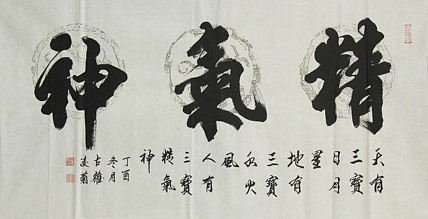 精
氣
神
天有
三寶
日月
星
地有
三寶
水火
風
人有
三寶
精氣
神
丁酉
冬月
古